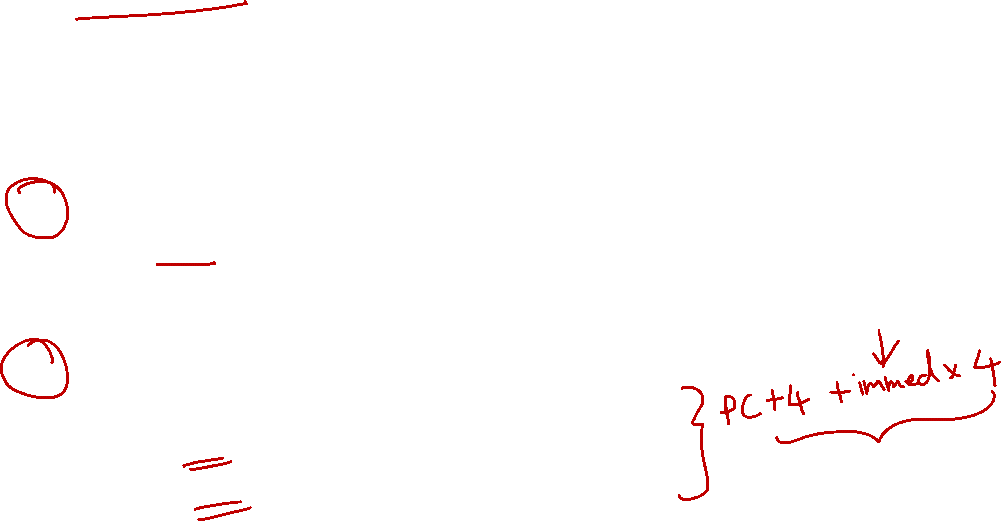 } PC+4 +immed x 4